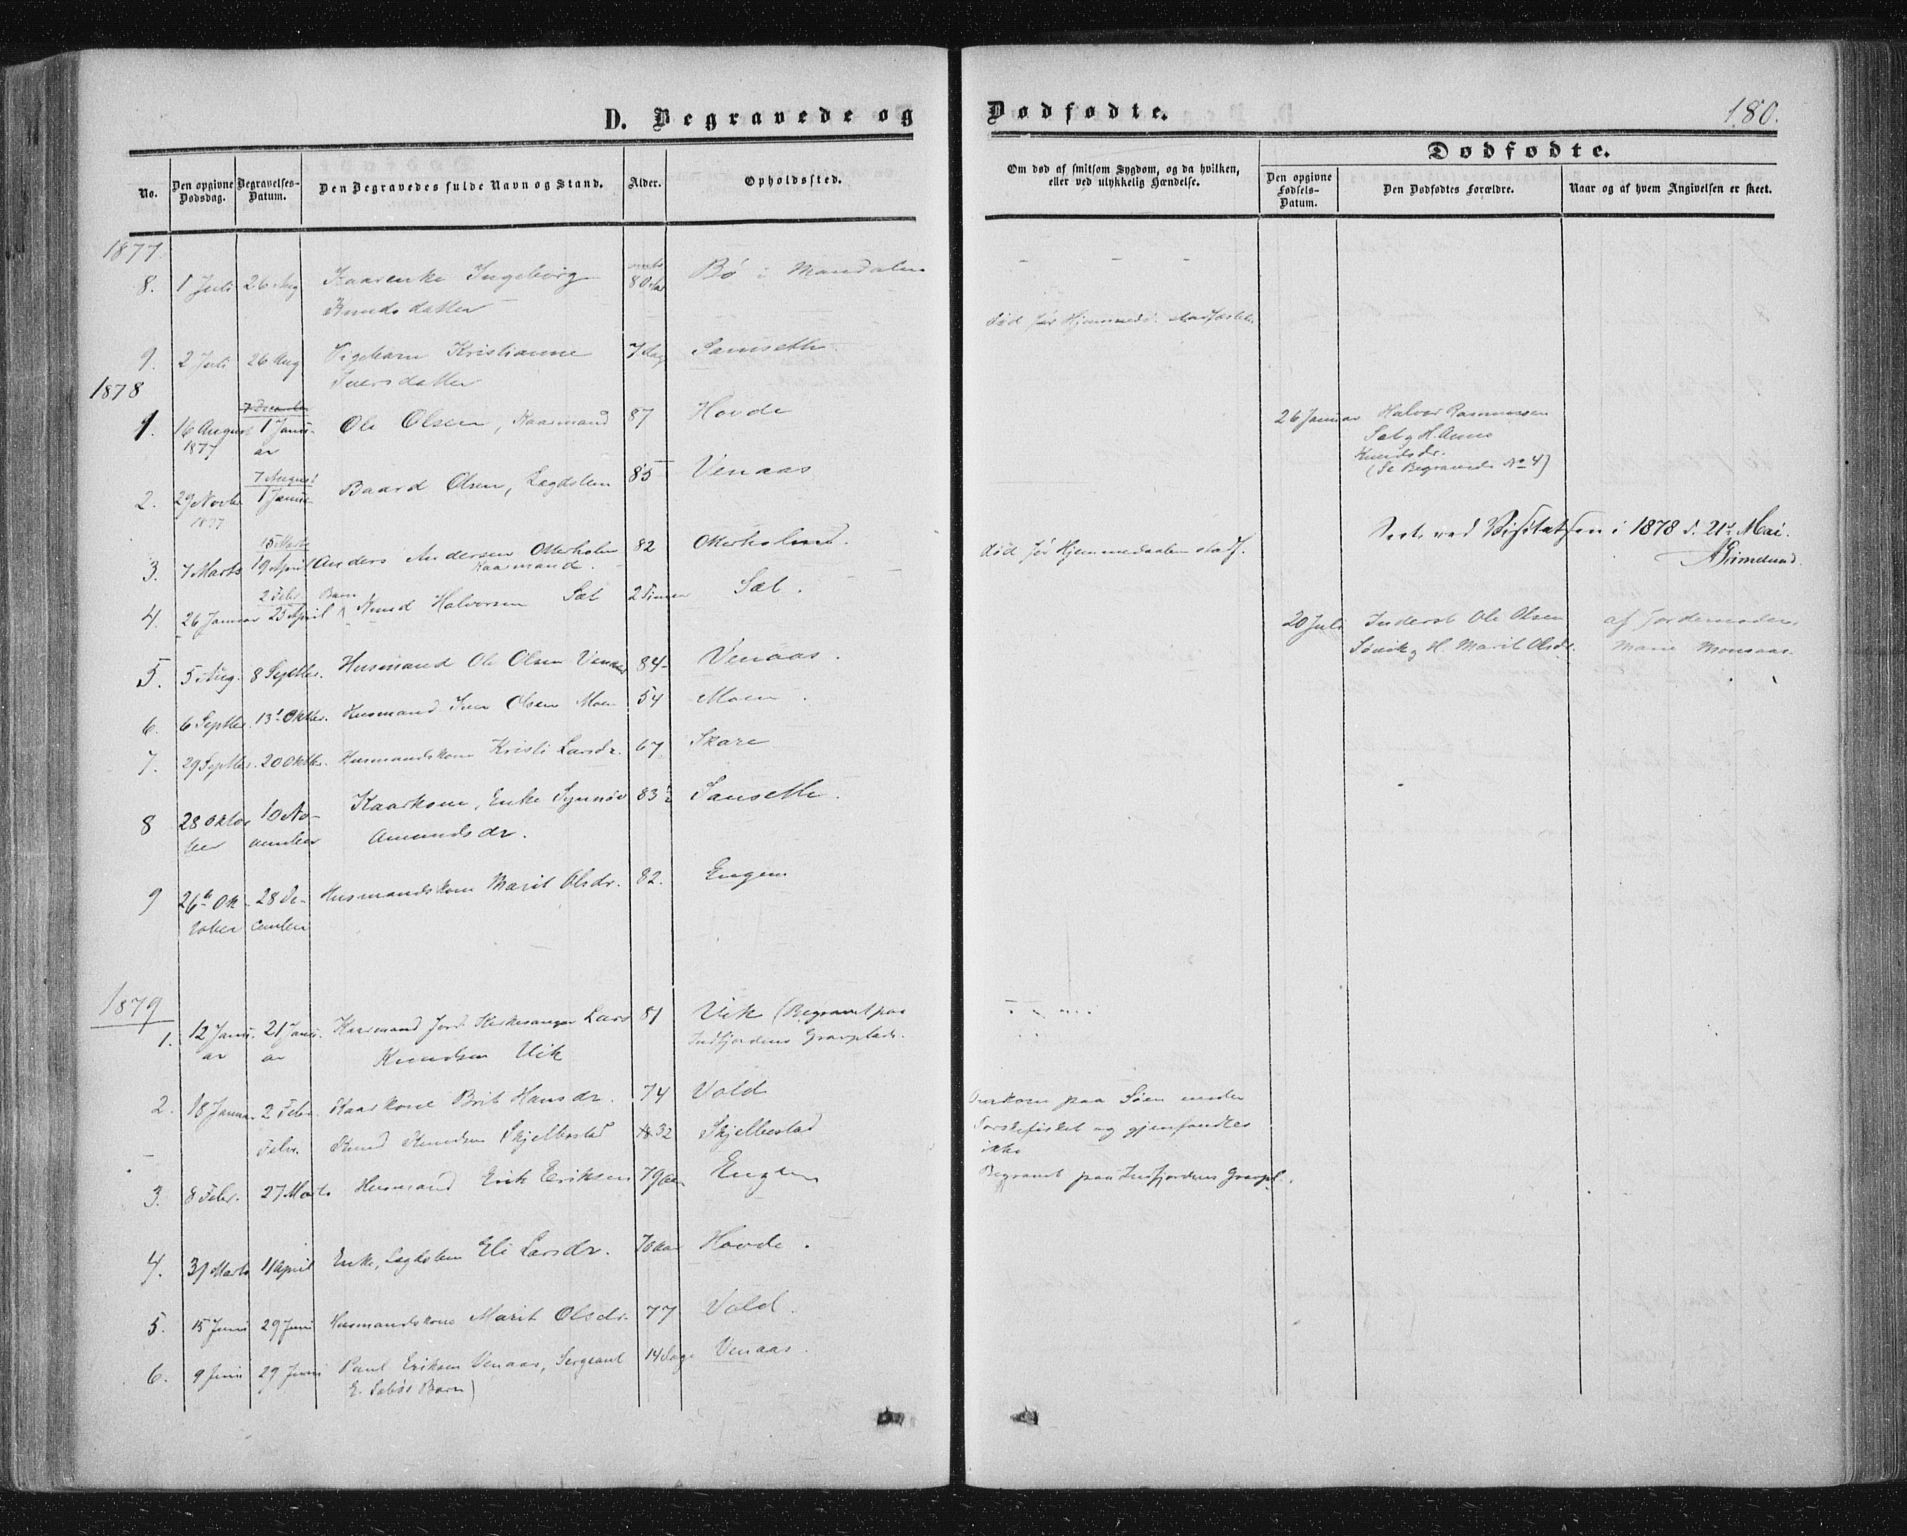 D. Begravede og
Dødfødte.
180.
No.
Den opgivne Dødsdag.
Begravelses-Datum.
Den Begravedes fulde Navn og Stand.
Alder.
Opholdssted.
Om død af smitsom Sygdom, og da hvilken,
eller ved ulykkelig Hændelse.
Dødfødte.
Den opgivne Fødsels-Datum.
Den Dødfødtes Forældre.
Naar og af hvem Angivelsen er skeet.
1877
8. 1 Juli 26 Aug Kaarenke Ingeborg 80 Aar Bø i Mandalen
Knudsdatter
9. 2 Juli 26 Aug Kristianne 7 Dag Sanseth
Iversdatter
død før Hjemmed. stadfæstet
1878
1. 16 August 1877 1 Januar Ole Olsen, Kaarmand 87 Hovde
2. 29 Novbr 1877 7 August 1 Januar Baard Olsen, Lægdslem 85 Venaas
3. 7 Marts 15 Marts 19 April Anders Andersen Otterholm 82 Otterholm.
Kaarmand.
død før Hjemmedaaben stadf.
4. 26 Januar 2 Febr 25 April Barn Knud Halvorsen Sæt 2 Timer Sæt.
5. 5 Aug. 8 Septbr. Husmand Ole Olsen Venaas 84 Venaas.
6. 6 Septbr. 13 Oktbr. Husmand Iver Olsen Moen 54 Moen.
7. 29 Septbr. 20 Oktbr. Husmandskone Kristi Larsdr. 67 Skare
8 28 Oktober 10 November Kaarkone, Enke Synnøv 83 Sanseth.
Amundsdr.
9 26 Oktober 28 December Husmandskone Marit Olsdr. 82. Engen
26 Januar Halvor Rasmussen
Sæt og H. Anne
Knudsdr.
(Se Begravede No 4)
Seet ved Visitatsen i 1878 d. 21de Mai.
20 Juli Inderst Ole Olsen
og H. Marit Olsdr.
af Jordemoder
Marie Monsaas.
1879
1. 12 Januar 21 Januar Kaarmand, ford. Kirkesanger Lars 81 Vik (Begravet paa
Knudsen Vik Indfjordens Gravplads.
2. 18 Januar 2 Febr. Kaarkone Brit Hansdr. 74 Vold
- Febr. Knud Knudsen Skjelbostad 32 Skjelbostad
Omkom paa Søen under
Torskefisket og gjenfandtes
ikke
3. 8 Febr. 27 Marts Husmand Erik Eriksen 79 Aar Engen
Begravet paa Indfjordens Gravpl.
4. 31 Marts 11 April Enke, Lægdslem Eli Larsdr. 76 Aar Hovde.
5. 15 Juni 29 Juni Husmandskone Marit Olsdr. 77 Vold.
6. 9 Juni 29 Juni Paul Eriksen Venaas, Sergeant 14 Dage Venaas.
E. Barn)